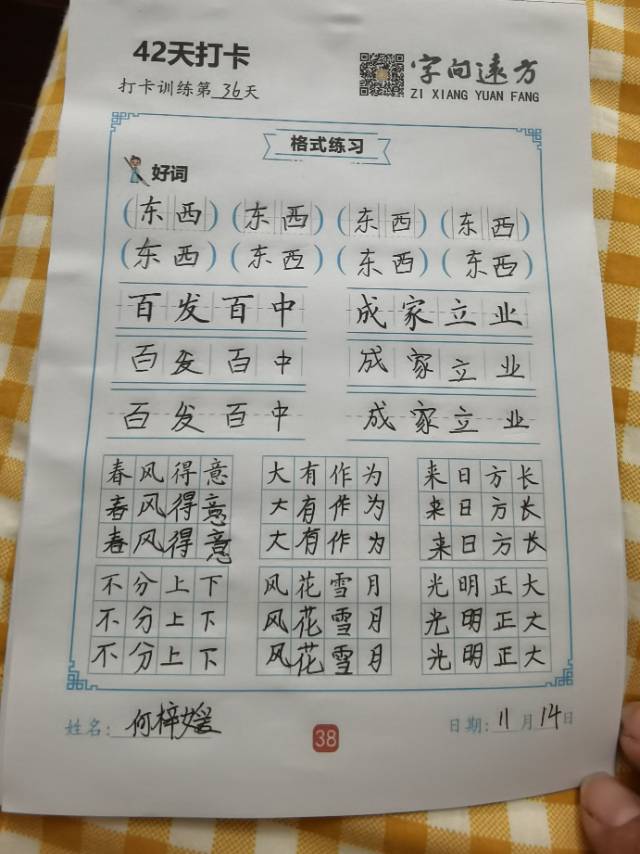 42天打卡
字向远方
打卡训练第36天
ZI XIANG YUAN FANG
格式练习
好词
(东西)(东西)(东西)(东西)
(东西)(东西)(东西)(东西)
百发百中 成家立业
百发百中 成家立业
百发百中 成家立业
春风得意 大有作为 来日方长
春风得意 大有作为 来日方长
春风得意 大有作为 来日方长
不分上下 风花雪月 光明正大
不分上下 风花雪月 光明正大
不分上下 风花雪月 光明正大
姓名:何梓媛 38 日期:11月14日